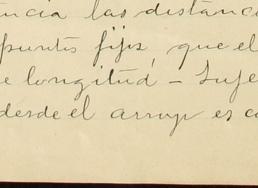 ncia las distanc
puntos fijos, que el
e longitud - Suje
desde el arroyo es c